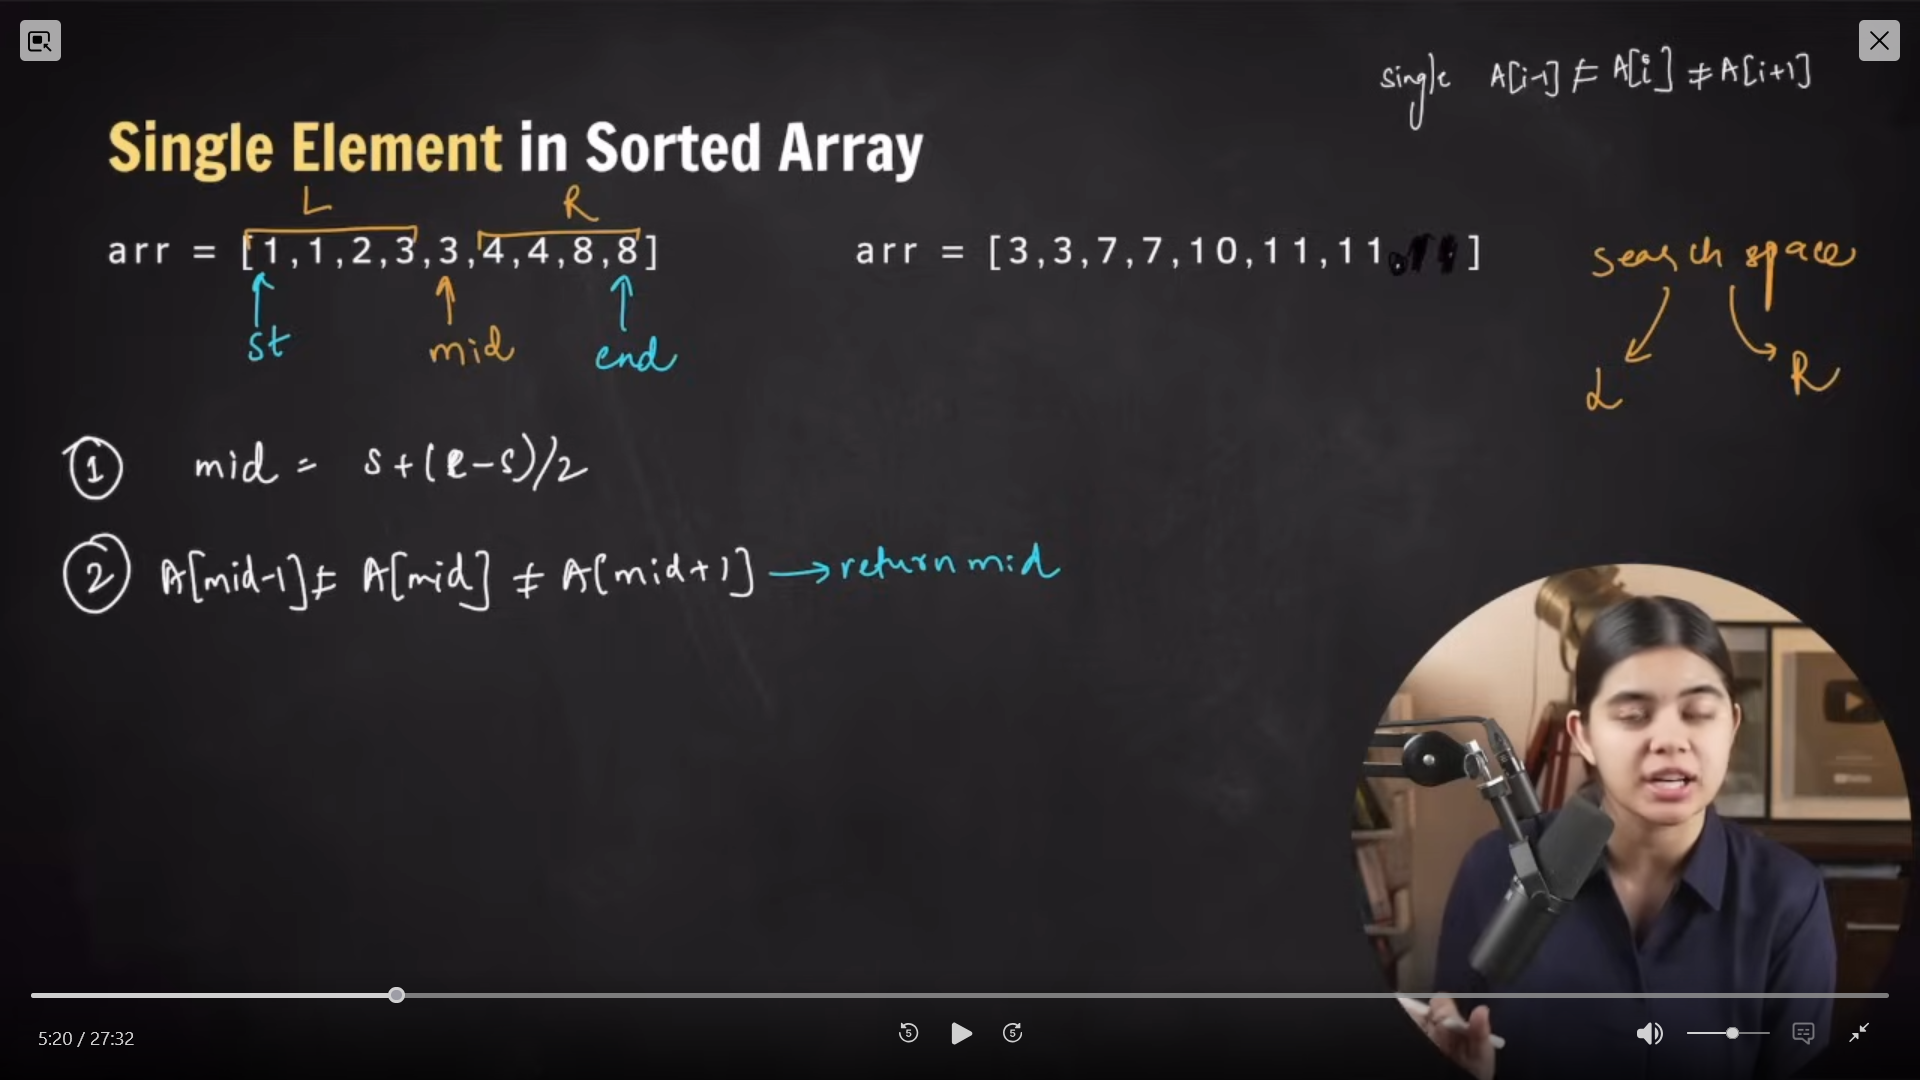 single A[i-1] ≠ A[i] ≠ A[i+1]
Single Element in Sorted Array
L R
arr = [1,1,2,3,3,4,4,8,8]
arr = [3,3,7,7,10,11,11 ]
search space
st mid end
L R
1 mid = s+(e-s)/2
2 A[mid-1] ≠ A[mid] ≠ A[mid+1] → return mid
5:20 / 27:32
5 5